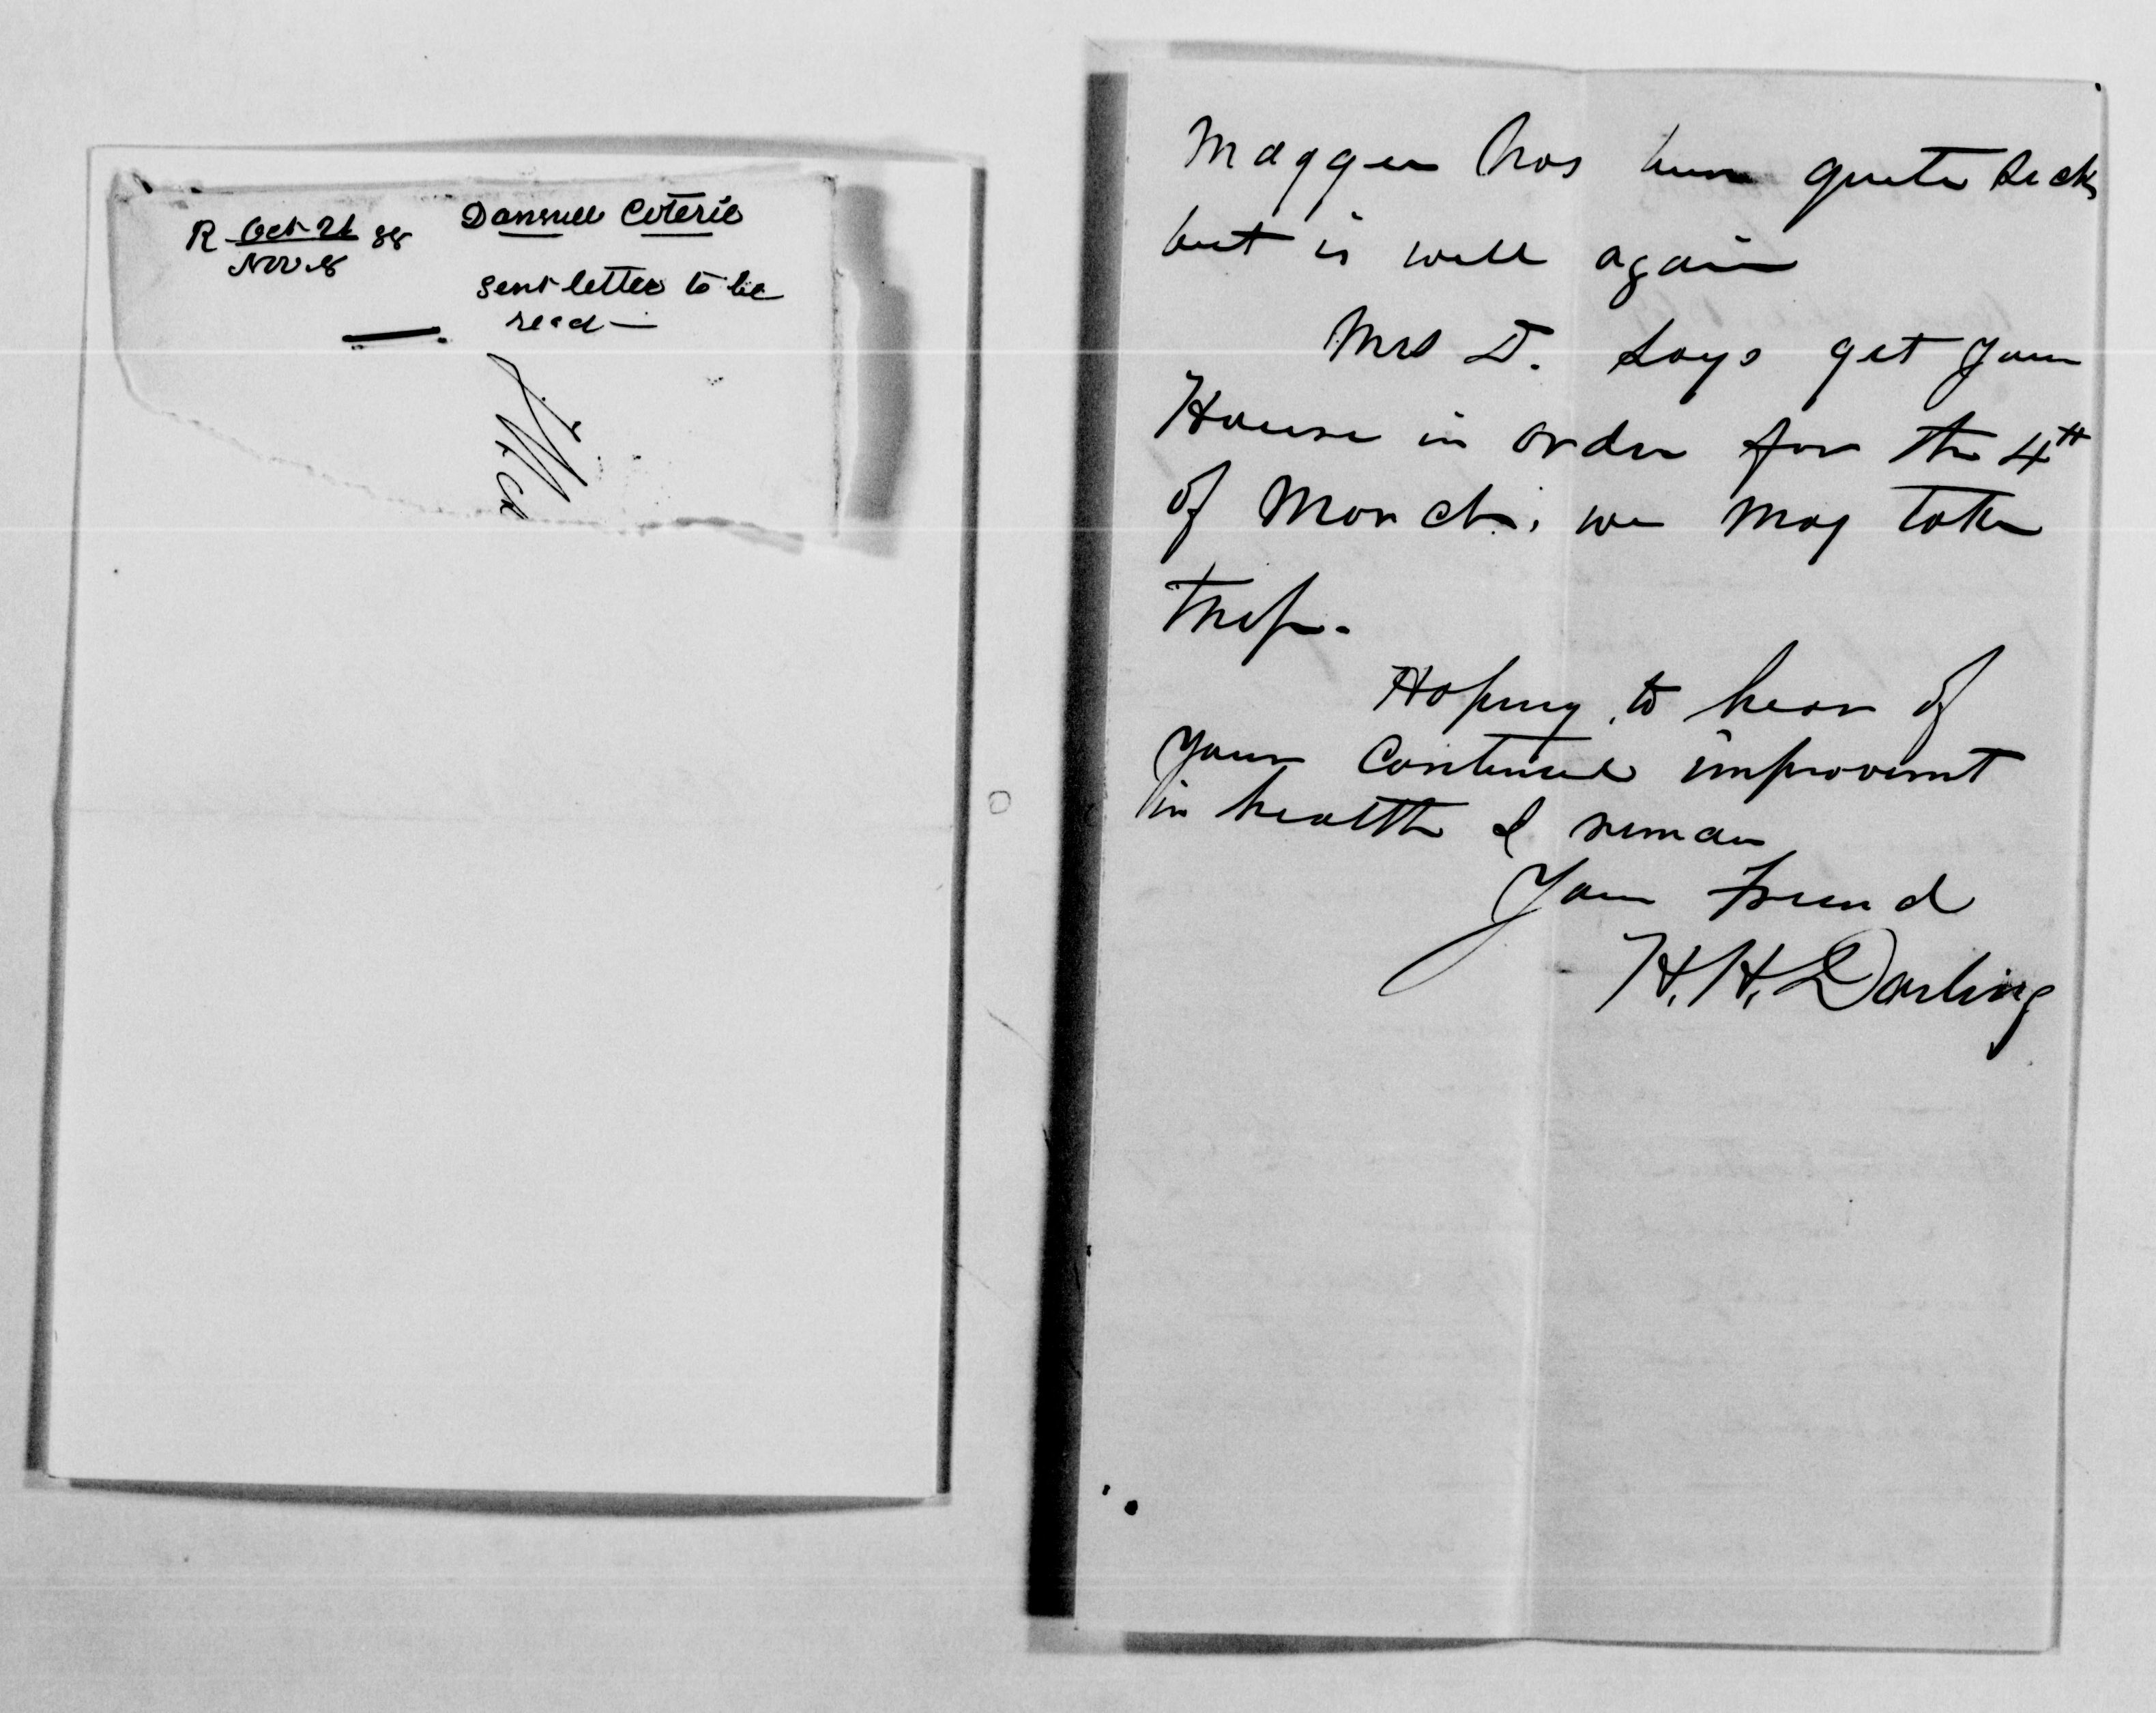 R Oct 26 88
Nov 8
Dansville Coterie
sent letter to be
read —
Maggie has been quite sick
but is well again
Mrs D. says get your
House in order for the 4th
of March. we may take
trip.
Hoping to hear of
your continued improvemt
in health I remain
Your friend
H. H. Darling